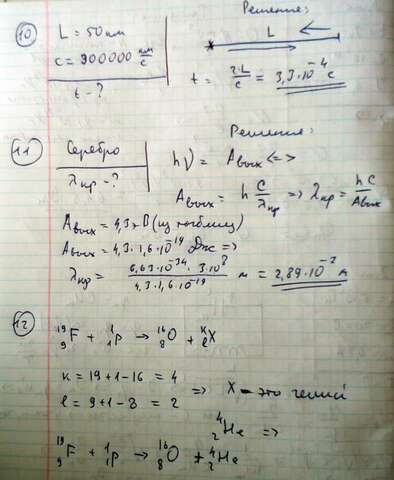 Решение:
10
L = 50 км
c = 300000 км/с
t - ?
L
t = 2·L/c = 3,3·10⁻⁴ c
Решение:
11
Серебро
λкр - ?
hν = Aвых <=>
Aвых = h c/λкр => λкр = hc/Aвых
Aвых = 4,3 эВ (из таблиц)
Aвых = 4,3·1,6·10⁻¹⁹ Дж =>
λкр = 6,63·10⁻³⁴·3·10⁸/4,3·1,6·10⁻¹⁹ м = 2,89·10⁻⁷ м
12
¹⁹₉F + ¹₁p → ¹⁶₈O + ᵏₑX
k = 19+1-16 = 4
l = 9+1-8 = 2
=> X - это гелий
⁴₂He =>
¹⁹₉F + ¹₁p → ¹⁶₈O + ⁴₂He